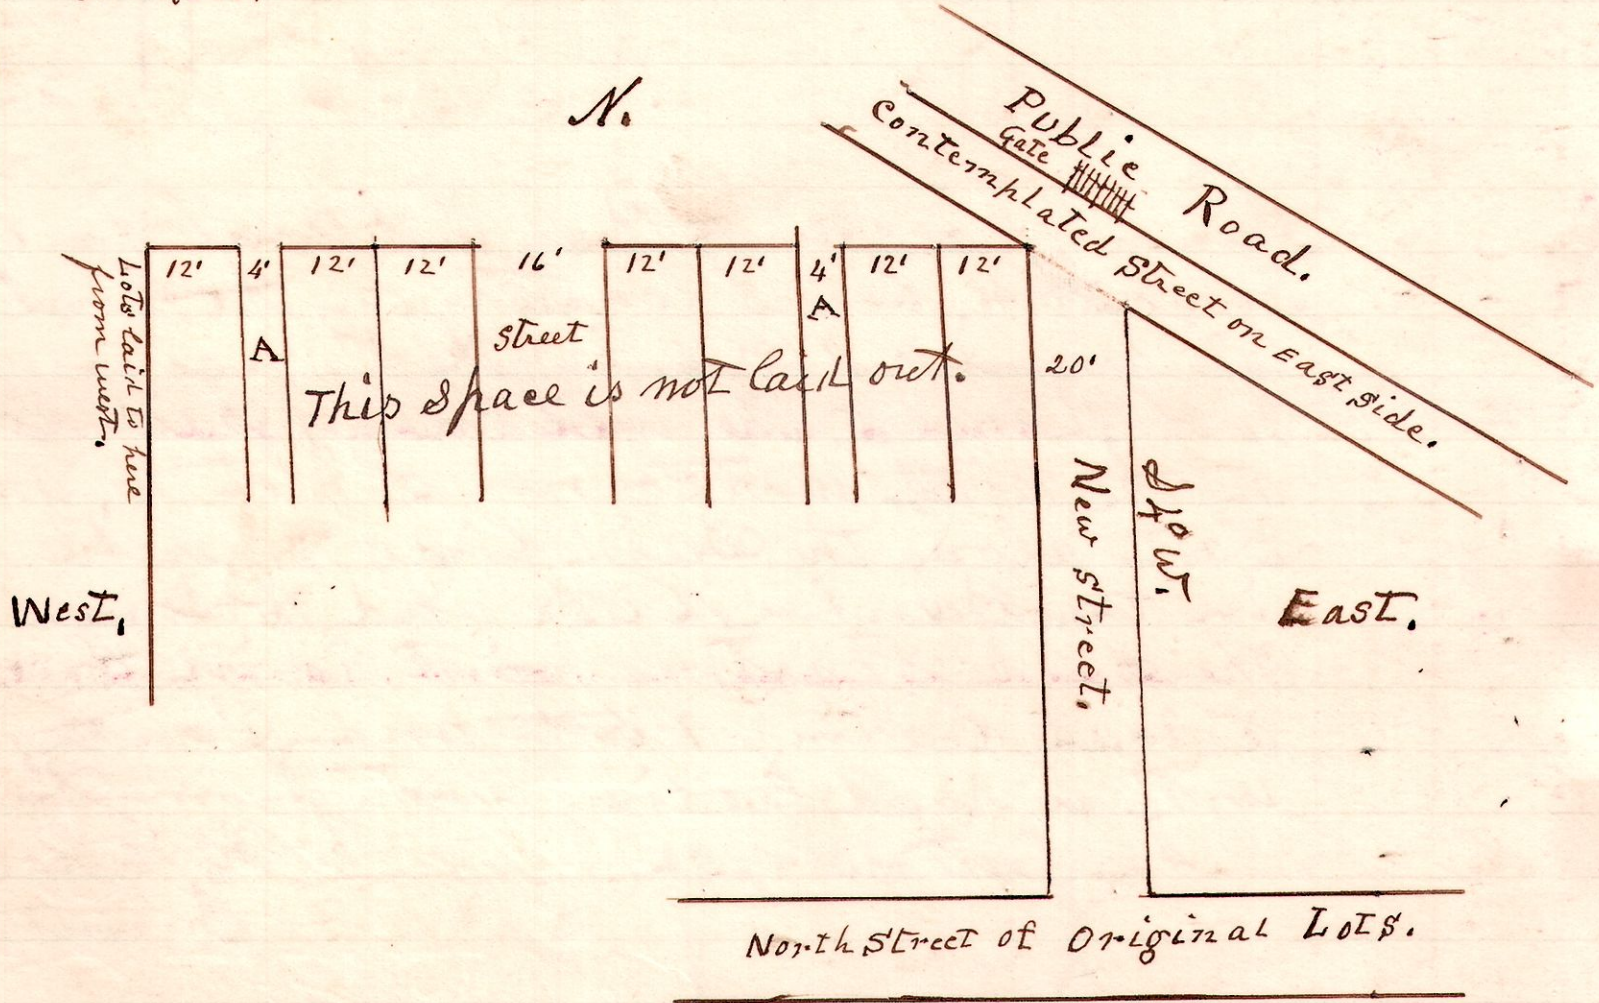 N.
Public Road.
Gate
Contemplated Street on East Side.
Lots laid to here
from west.
12' 4' 12' 12' 16' 12' 12' 4' 12' 12'
A
A
Street
This Space is not laid out.
20'
New Street.
S 4° W.
West,
East.
North Street of Original Lots.